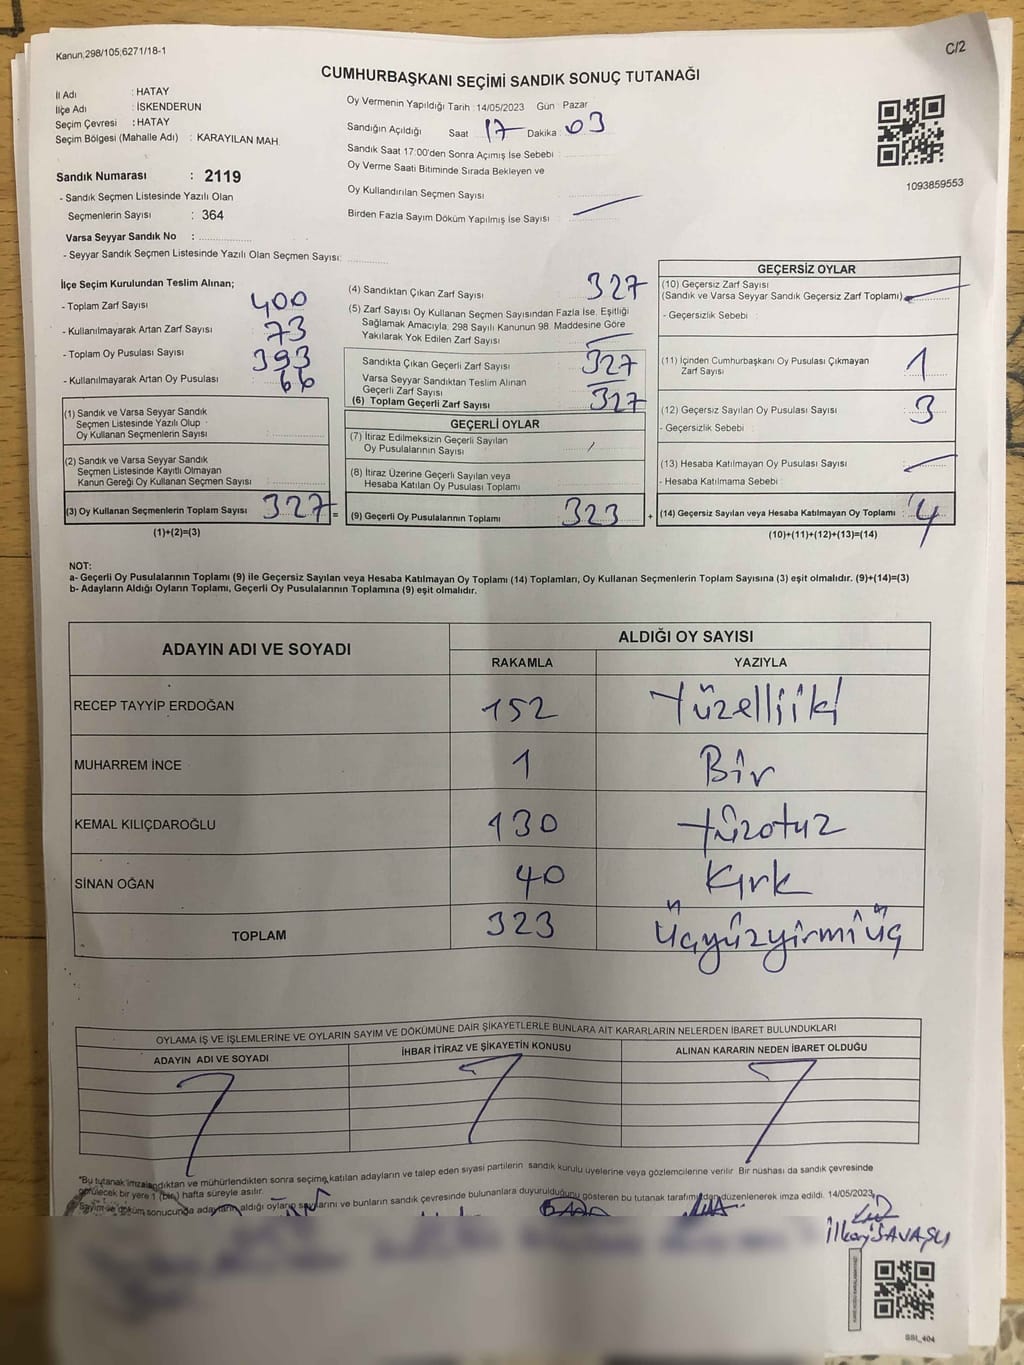 Kanun,298/105,6271/18-1
C/2
CUMHURBAŞKANI SEÇİMİ SANDIK SONUÇ TUTANAĞI
İl Adı : HATAY
İlçe Adı : İSKENDERUN
Seçim Çevresi : HATAY
Seçim Bölgesi (Mahalle Adı) : KARAYILAN MAH.
Sandık Numarası : 2119
- Sandık Seçmen Listesinde Yazılı Olan
Seçmenlerin Sayısı : 364
Varsa Seyyar Sandık No :
- Seyyar Sandık Seçmen Listesinde Yazılı Olan Seçmen Sayısı:
Oy Vermenin Yapıldığı Tarih : 14/05/2023 Gün : Pazar
Sandığın Açıldığı Saat 17 Dakika : 03
Sandık Saat 17:00'den Sonra Açımış İse Sebebi :
Oy Verme Saati Bitiminde Sırada Bekleyen ve
Oy Kullandırılan Seçmen Sayısı
Birden Fazla Sayım Döküm Yapılmış İse Sayısı
1093859553
İlçe Seçim Kurulundan Teslim Alınan;
- Toplam Zarf Sayısı : 400
- Kullanılmayarak Artan Zarf Sayısı : 73
- Toplam Oy Pusulası Sayısı : 393
- Kullanılmayarak Artan Oy Pusulası : 66
(1) Sandık ve Varsa Seyyar Sandık
Seçmen Listesinde Yazılı Olup
Oy Kullanan Seçmenlerin Sayısı :
(2) Sandık ve Varsa Seyyar Sandık
Seçmen Listesinde Kayıtlı Olmayan
Kanun Gereği Oy Kullanan Seçmen Sayısı :
(3) Oy Kullanan Seçmenlerin Toplam Sayısı : 327 =
(1)+(2)=(3)
(4) Sandıktan Çıkan Zarf Sayısı : 327
(5) Zarf Sayısı Oy Kullanan Seçmen Sayısından Fazla İse, Eşitliği
Sağlamak Amacıyla; 298 Sayılı Kanunun 98. Maddesine Göre
Yakılarak Yok Edilen Zarf Sayısı
Sandıkta Çıkan Geçerli Zarf Sayısı : 327
Varsa Seyyar Sandıktan Teslim Alınan
Geçerli Zarf Sayısı
(6) Toplam Geçerli Zarf Sayısı : 327
GEÇERLİ OYLAR
(7) İtiraz Edilmeksizin Geçerli Sayılan
Oy Pusulalarının Sayısı :
(8) İtiraz Üzerine Geçerli Sayılan veya
Hesaba Katılan Oy Pusulası Toplamı :
(9) Geçerli Oy Pusulalarının Toplamı : 323 +
GEÇERSİZ OYLAR
(10) Geçersiz Zarf Sayısı
(Sandık ve Varsa Seyyar Sandık Geçersiz Zarf Toplamı)
- Geçersizlik Sebebi :
(11) İçinden Cumhurbaşkanı Oy Pusulası Çıkmayan
Zarf Sayısı : 1
(12) Geçersiz Sayılan Oy Pusulası Sayısı : 3
- Geçersizlik Sebebi :
(13) Hesaba Katılmayan Oy Pusulası Sayısı :
- Hesaba Katılmama Sebebi :
(14) Geçersiz Sayılan veya Hesaba Katılmayan Oy Toplamı : 4
(10)+(11)+(12)+(13)=(14)
NOT:
a- Geçerli Oy Pusulalarının Toplamı (9) ile Geçersiz Sayılan veya Hesaba Katılmayan Oy Toplamı (14) Toplamları, Oy Kullanan Seçmenlerin Toplam Sayısına (3) eşit olmalıdır. (9)+(14)=(3)
b- Adayların Aldığı Oyların Toplamı, Geçerli Oy Pusulalarının Toplamına (9) eşit olmalıdır.
ADAYIN ADI VE SOYADI
ALDIĞI OY SAYISI
RAKAMLA YAZIYLA
RECEP TAYYİP ERDOĞAN 152 Yüzelliiki
MUHARREM İNCE 1 Bir
KEMAL KILIÇDAROĞLU 130 Yüzotuz
SİNAN OĞAN 40 Kırk
TOPLAM 323 Üçyüzyirmiüç
OYLAMA İŞ VE İŞLEMLERİNE VE OYLARIN SAYIM VE DÖKÜMÜNE DAİR ŞİKAYETLERLE BUNLARA AİT KARARLARIN NELERDEN İBARET BULUNDUKLARI
ADAYIN ADI VE SOYADI İHBAR İTİRAZ VE ŞİKAYETİN KONUSU ALINAN KARARIN NEDEN İBARET OLDUĞU
"Bu tutanak imzalandıktan ve mühürlendikten sonra seçime katılan adayların ve talep eden siyasi partilerin sandık kurulu üyelerine veya gözlemcilerine verilir. Bir nüshası da sandık çevresinde
görülecek bir yere 1 (bir) hafta süreyle asılır.
Sayım ve döküm sonucunda adayların aldığı oyların sayılarını ve bunların sandık çevresinde bulunanlara duyurulduğunu gösteren bu tutanak tarafımızdan düzenlenerek imza edildi. 14/05/2023
İlkay SAVAŞLI